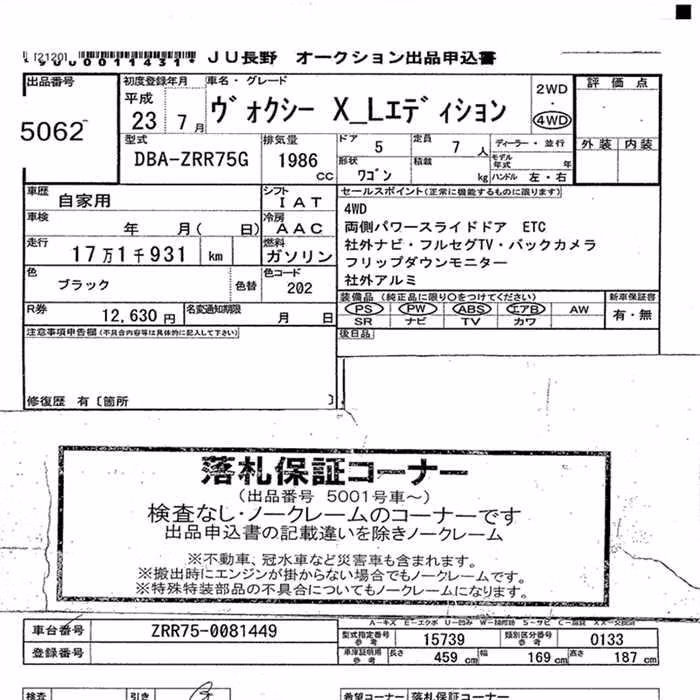 [2120] *9000011431* JU長野 オークション出品申込書
出品番号 初度登録年月 車名・グレード 2WD・4WD 評価点
5062 平成23 7月 ヴォクシー X_Lエディション
型式 DBA-ZRR75G 排気量 1986 cc ドア 5 定員 7人 ディーラー・並行 外装 内装
形状 ワゴン 積載 kg モデル年式 年 ハンドル 左・右
車歴 自家用 シフト IAT セールスポイント(正常に機能するものに限ります)
車検 年 月( 日) 冷房 AAC 4WD
両側パワースライドドア ETC
走行 17万1千931 km 燃料 ガソリン 社外ナビ・フルセグTV・バックカメラ
フリップダウンモニター
色 ブラック 色替 色コード 202 社外アルミ
R券 12,630円 名変通知期限 月 日 装備品 (純正品に限り○をつけてください) 新車保証書
PS PW ABS エアB AW 有・無
SR ナビ TV カワ
注意事項申告欄(不具合内容等は具体的に記入して下さい) 後日品
修復歴 有〔箇所 〕
落札保証コーナー
(出品番号 5001号車～)
検査なし・ノークレームのコーナーです
出品申込書の記載違いを除きノークレーム
※不動車、冠水車など災害車も含まれます。
※搬出時にエンジンが掛からない場合でもノークレームです。
※特殊特装部品の不具合についてもノークレームになります。
車台番号 ZRR75-0081449 型式指定番号 参考 15739 類別区分番号 参考 0133
登録番号 車庫証明用 参考 長さ 459 cm 幅 169 cm 高さ 187 cm
検査 引き 希望コーナー 落札保証コーナー